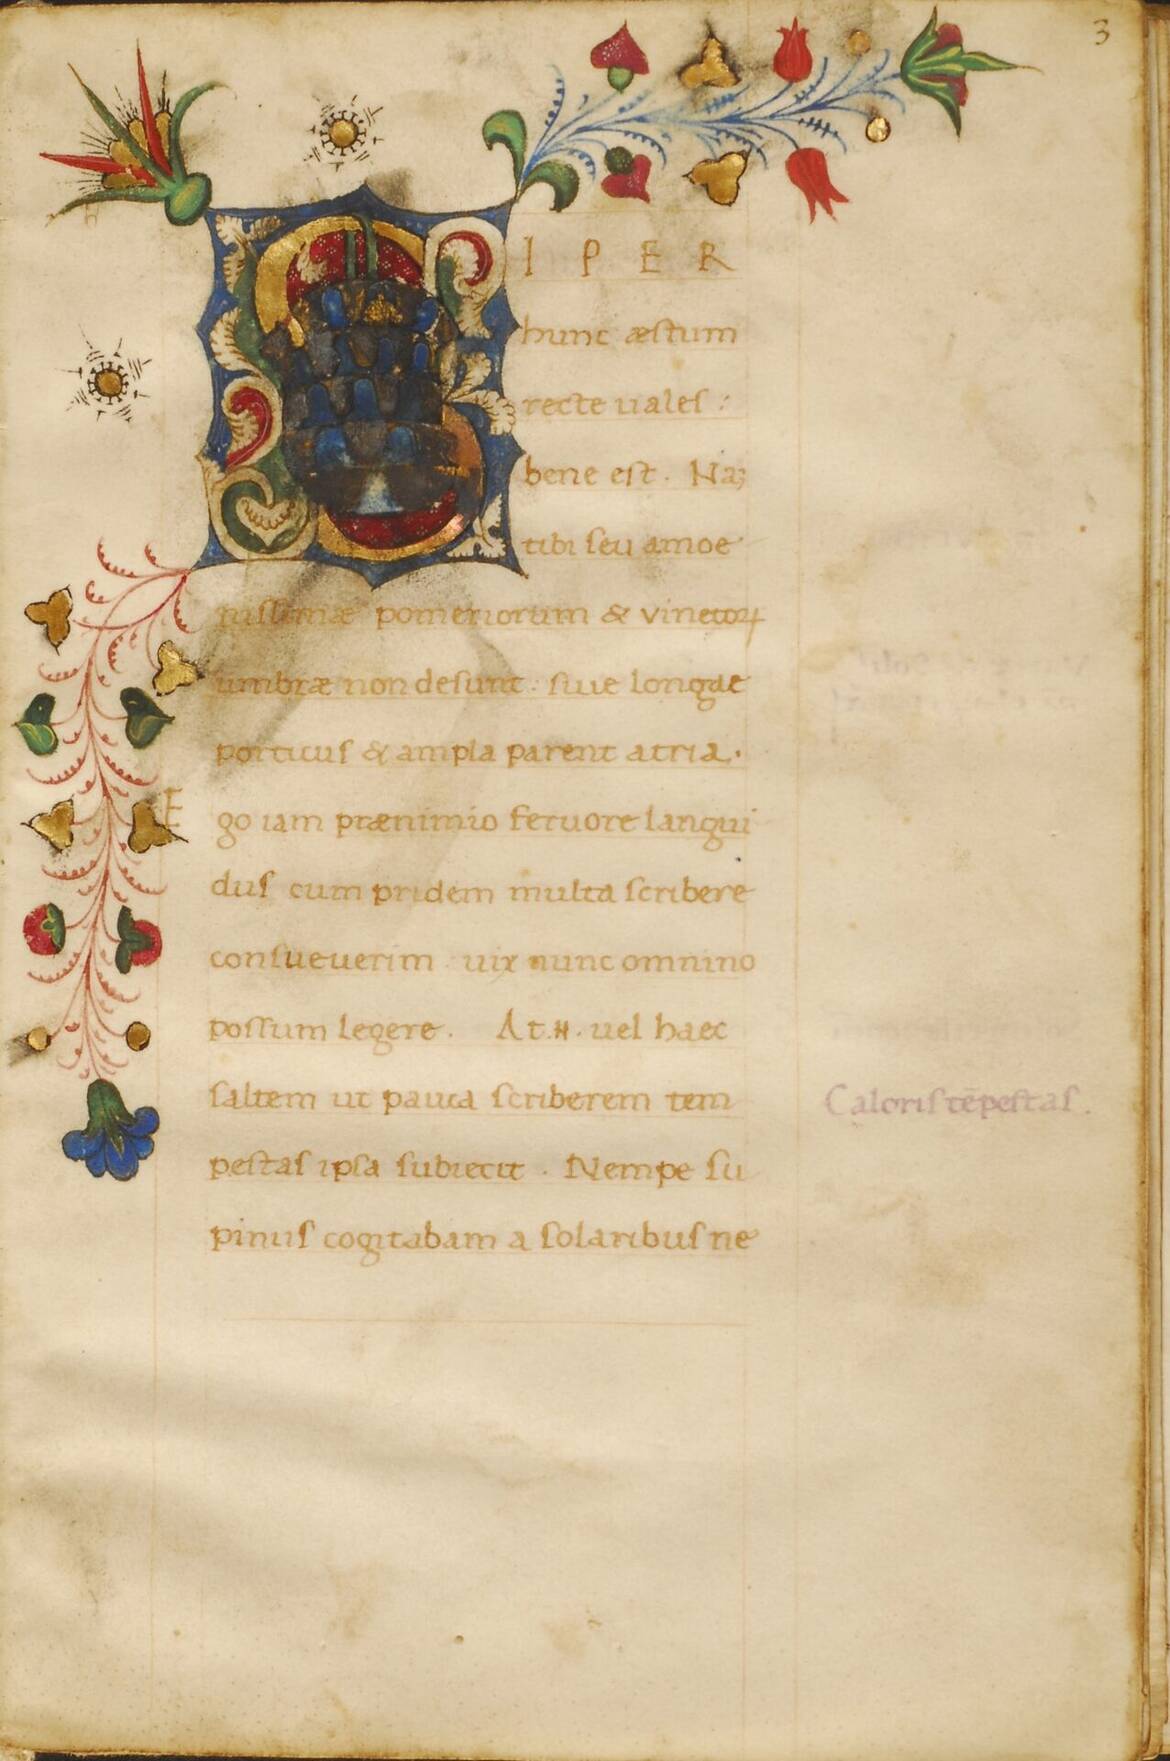 3
S I P E R
hunc æstum
recte uales :
bene est . Naꝫ
tibi seu amoe
nissimæ pomeriorum & vinetoꝝ
umbræ non desunt : siue longae
porticus & ampla parent atria .
Ego iam prænimio feruore langui
dus cum pridem multa scribere
consueuerim uix nunc omnino
possum legere . At .H. uel haec
saltem ut pauca scriberem tem
pestas ipsa subiecit . Nempe su
pinus cogitabam a solaribus ne
Caloris tēpestas .